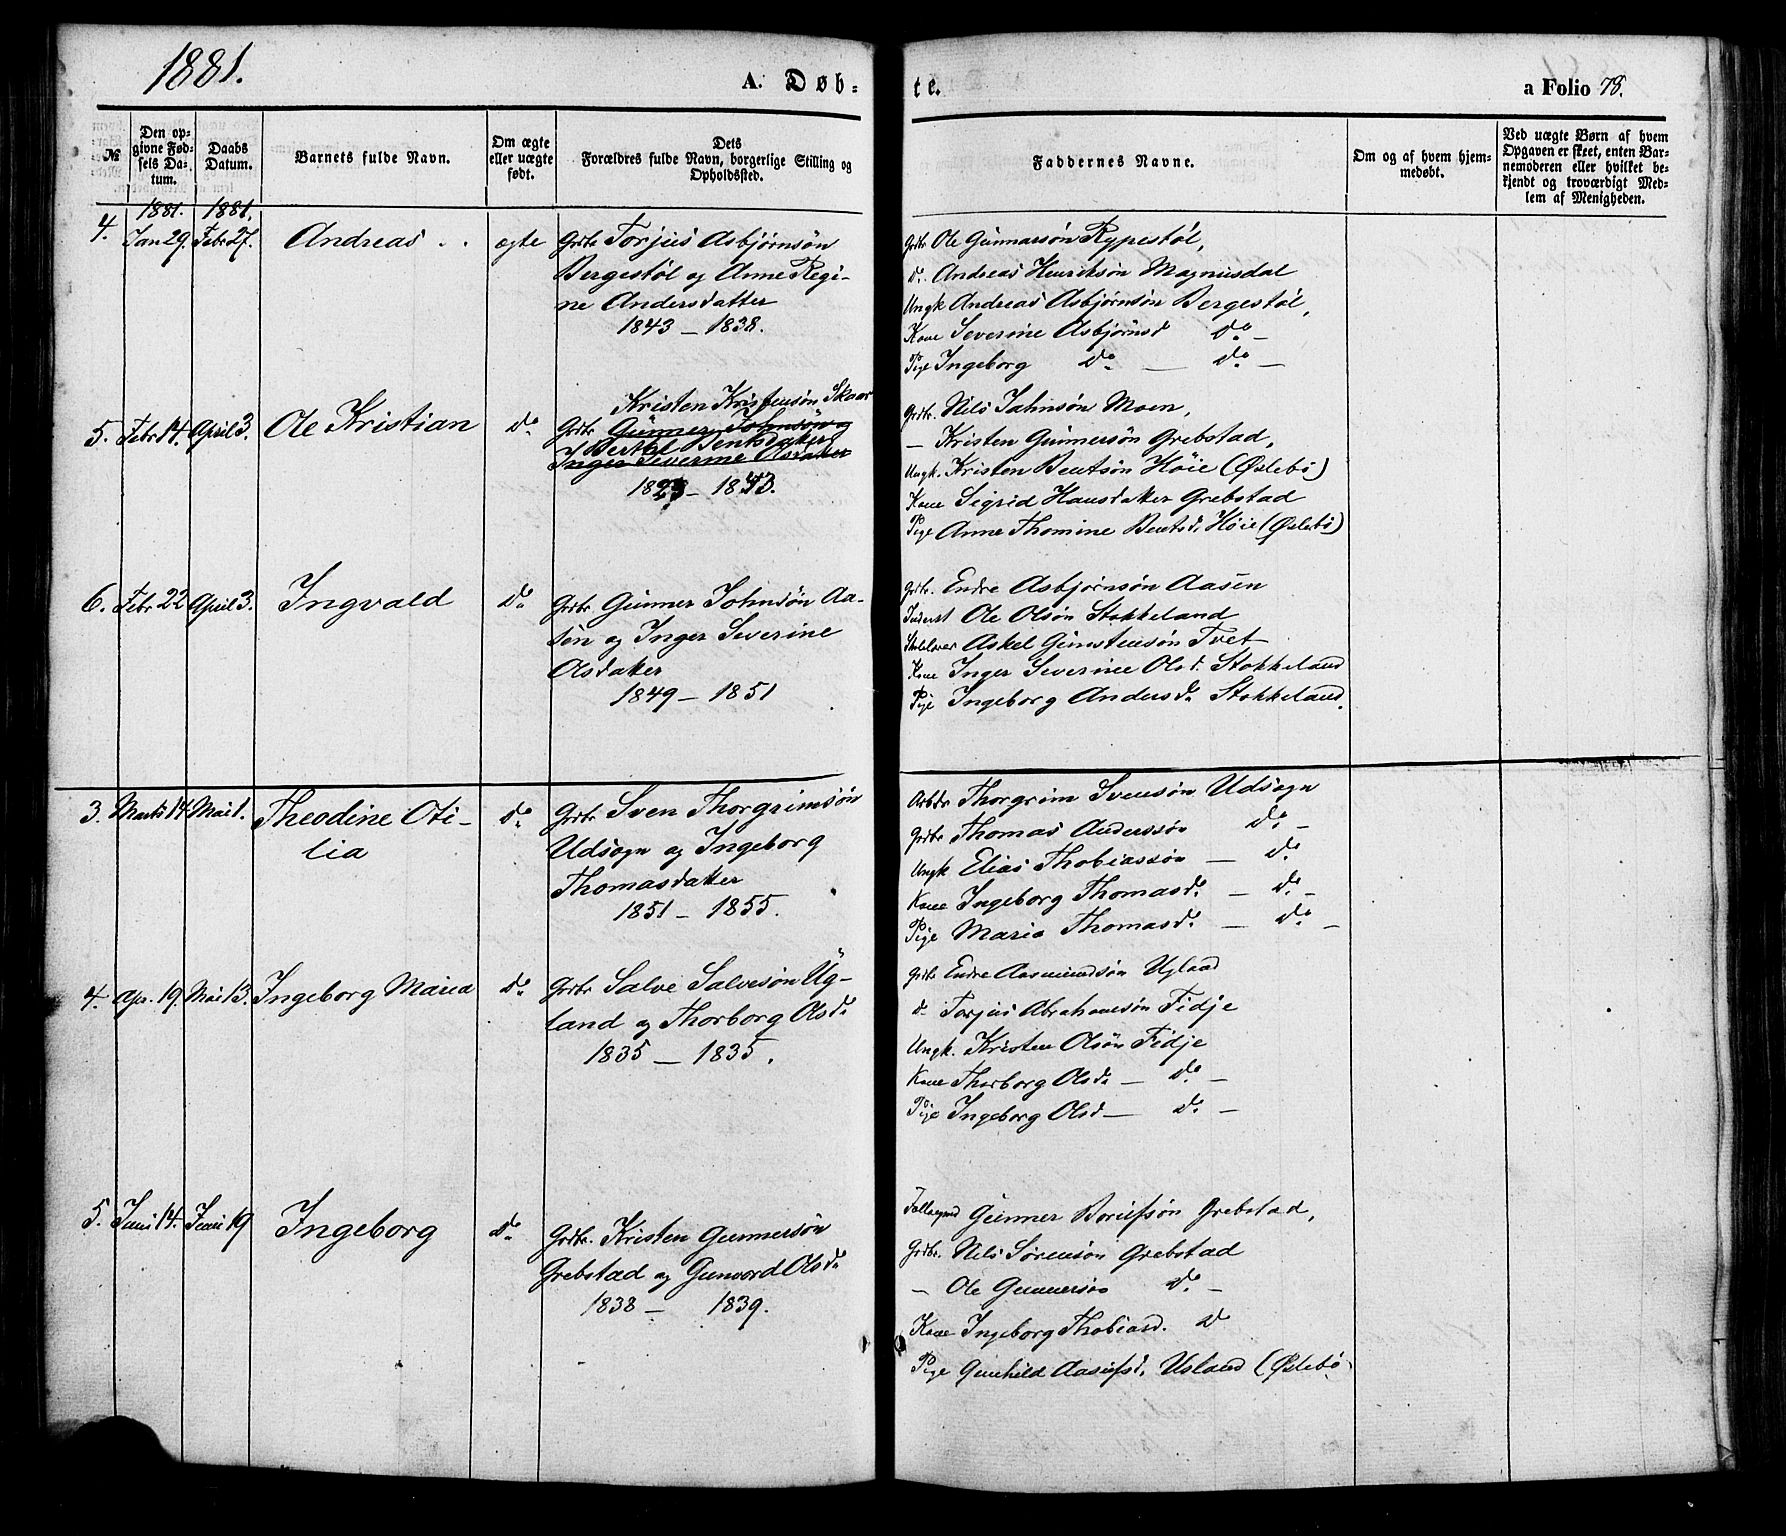 1881.
A. Døb-
te.
a Folio 78.
№
Den op-
givne Fød-
sels Da-
tum.
Daabs
Datum.
Barnets fulde Navn.
Om ægte
eller uægte
født.
Dets
Forældres fulde Navn, borgerlige Stilling og
Opholdssted.
Faddernes Navne.
Om og af hvem hjem-
medøbt.
Ved uægte Børn af hvem
Opgaven er skeet, enten Bar-
nemoderen eller hvilket be-
kjendt og troværdigt Med-
lem af Menigheden.
1881. 1881.
4. Jan 29. Febr 27. Andreas ægte Grdbr Torjus Asbjørnsön
Bergestøl og Anne Regi-
ne Andersdatter
1843 – 1838.
Grdbr Ole Gunnarsön Rypestøl,
do. Andreas Henriksön Magnusdal
Ungk Andreas Asbjørnsön Bergestøl,
Kone Severine Asbjørnsd do –
Pige Ingeborg do – do –
5. Febr 14. April 3. Ole Kristian do
Kristen Kristensön Skaar
Grdbr Gunner Johnsön
Berthe Bentsdatter
Inger Severine Olsdatter
1823 – 1843.
Grdbr. Nils Jahnsön Moen,
– Kristen Gunnersön Grebstad,
Ungk. Kristen Bentsön Höie (Øslebö)
Kone Sigrid Hansdatter Grebstad
Pige Anne Thomine Bentsd. Höie (Øslebö)
6. Febr 22 April 3. Ingvald do Grdbr Gunner Johnsön Aa-
sen og Inger Severine
Olsdatter
1849 – 1851
Grdbr. Endre Asbjørnsön Aasen
Inderst Ole Olsön Stokkeland
Skolelærer Askel Gunstensön Tvet
Kone Inger Severine Olsd. Stokkeland
Pige Ingeborg Andersd. Stokkeland.
3. Marts 14 Mai 1. Theodine Oti-
lia
do Grdbr Sven Thorgrimsön
Udsogn og Ingeborg
Thomasdatter
1851 – 1855.
Arbdr Thorgrim Svensön Udsogn
Grdbr Thomas Anderssön do. –
Ungk Elias Thobiassön – do.
Kone Ingeborg Thomasd. – do. –
Pige Maria Thomasd. – do –
4. Apr. 19. Mai 13. Ingeborg Maria do Grdbr Salve Salvesön Ug-
land og Thorborg Olsd.
1835 – 1835.
Grdbr Endre Aasmundsön Ugland
do Torjus Abrahamsön Fidje
Ungk. Kristen Olsön Fidje
Kone Thorborg Olsd. – do –
Pige Ingeborg Olsd – do. –
5. Juni 14. Juni 19 Ingeborg do. Grdbr. Kristen Gunnersön
Grebstad og Gunvord Olsd.
1838 – 1839.
Gunner Boriufsön Grebstad,
Grdbr. Nils Sörensön Grebstad
– Ole Gunnersön do. –
Kone Ingeborg Thobiasd. do
Pige Gunhild Aasulfsd. Usland (Øslebö